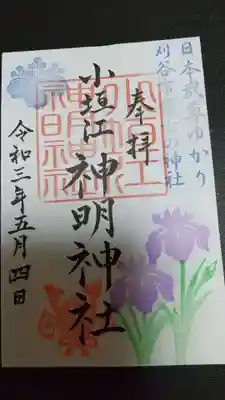 日本武尊ゆかり
刈谷市の神社
奉拝
小垣江神明神社
令和三年五月四日